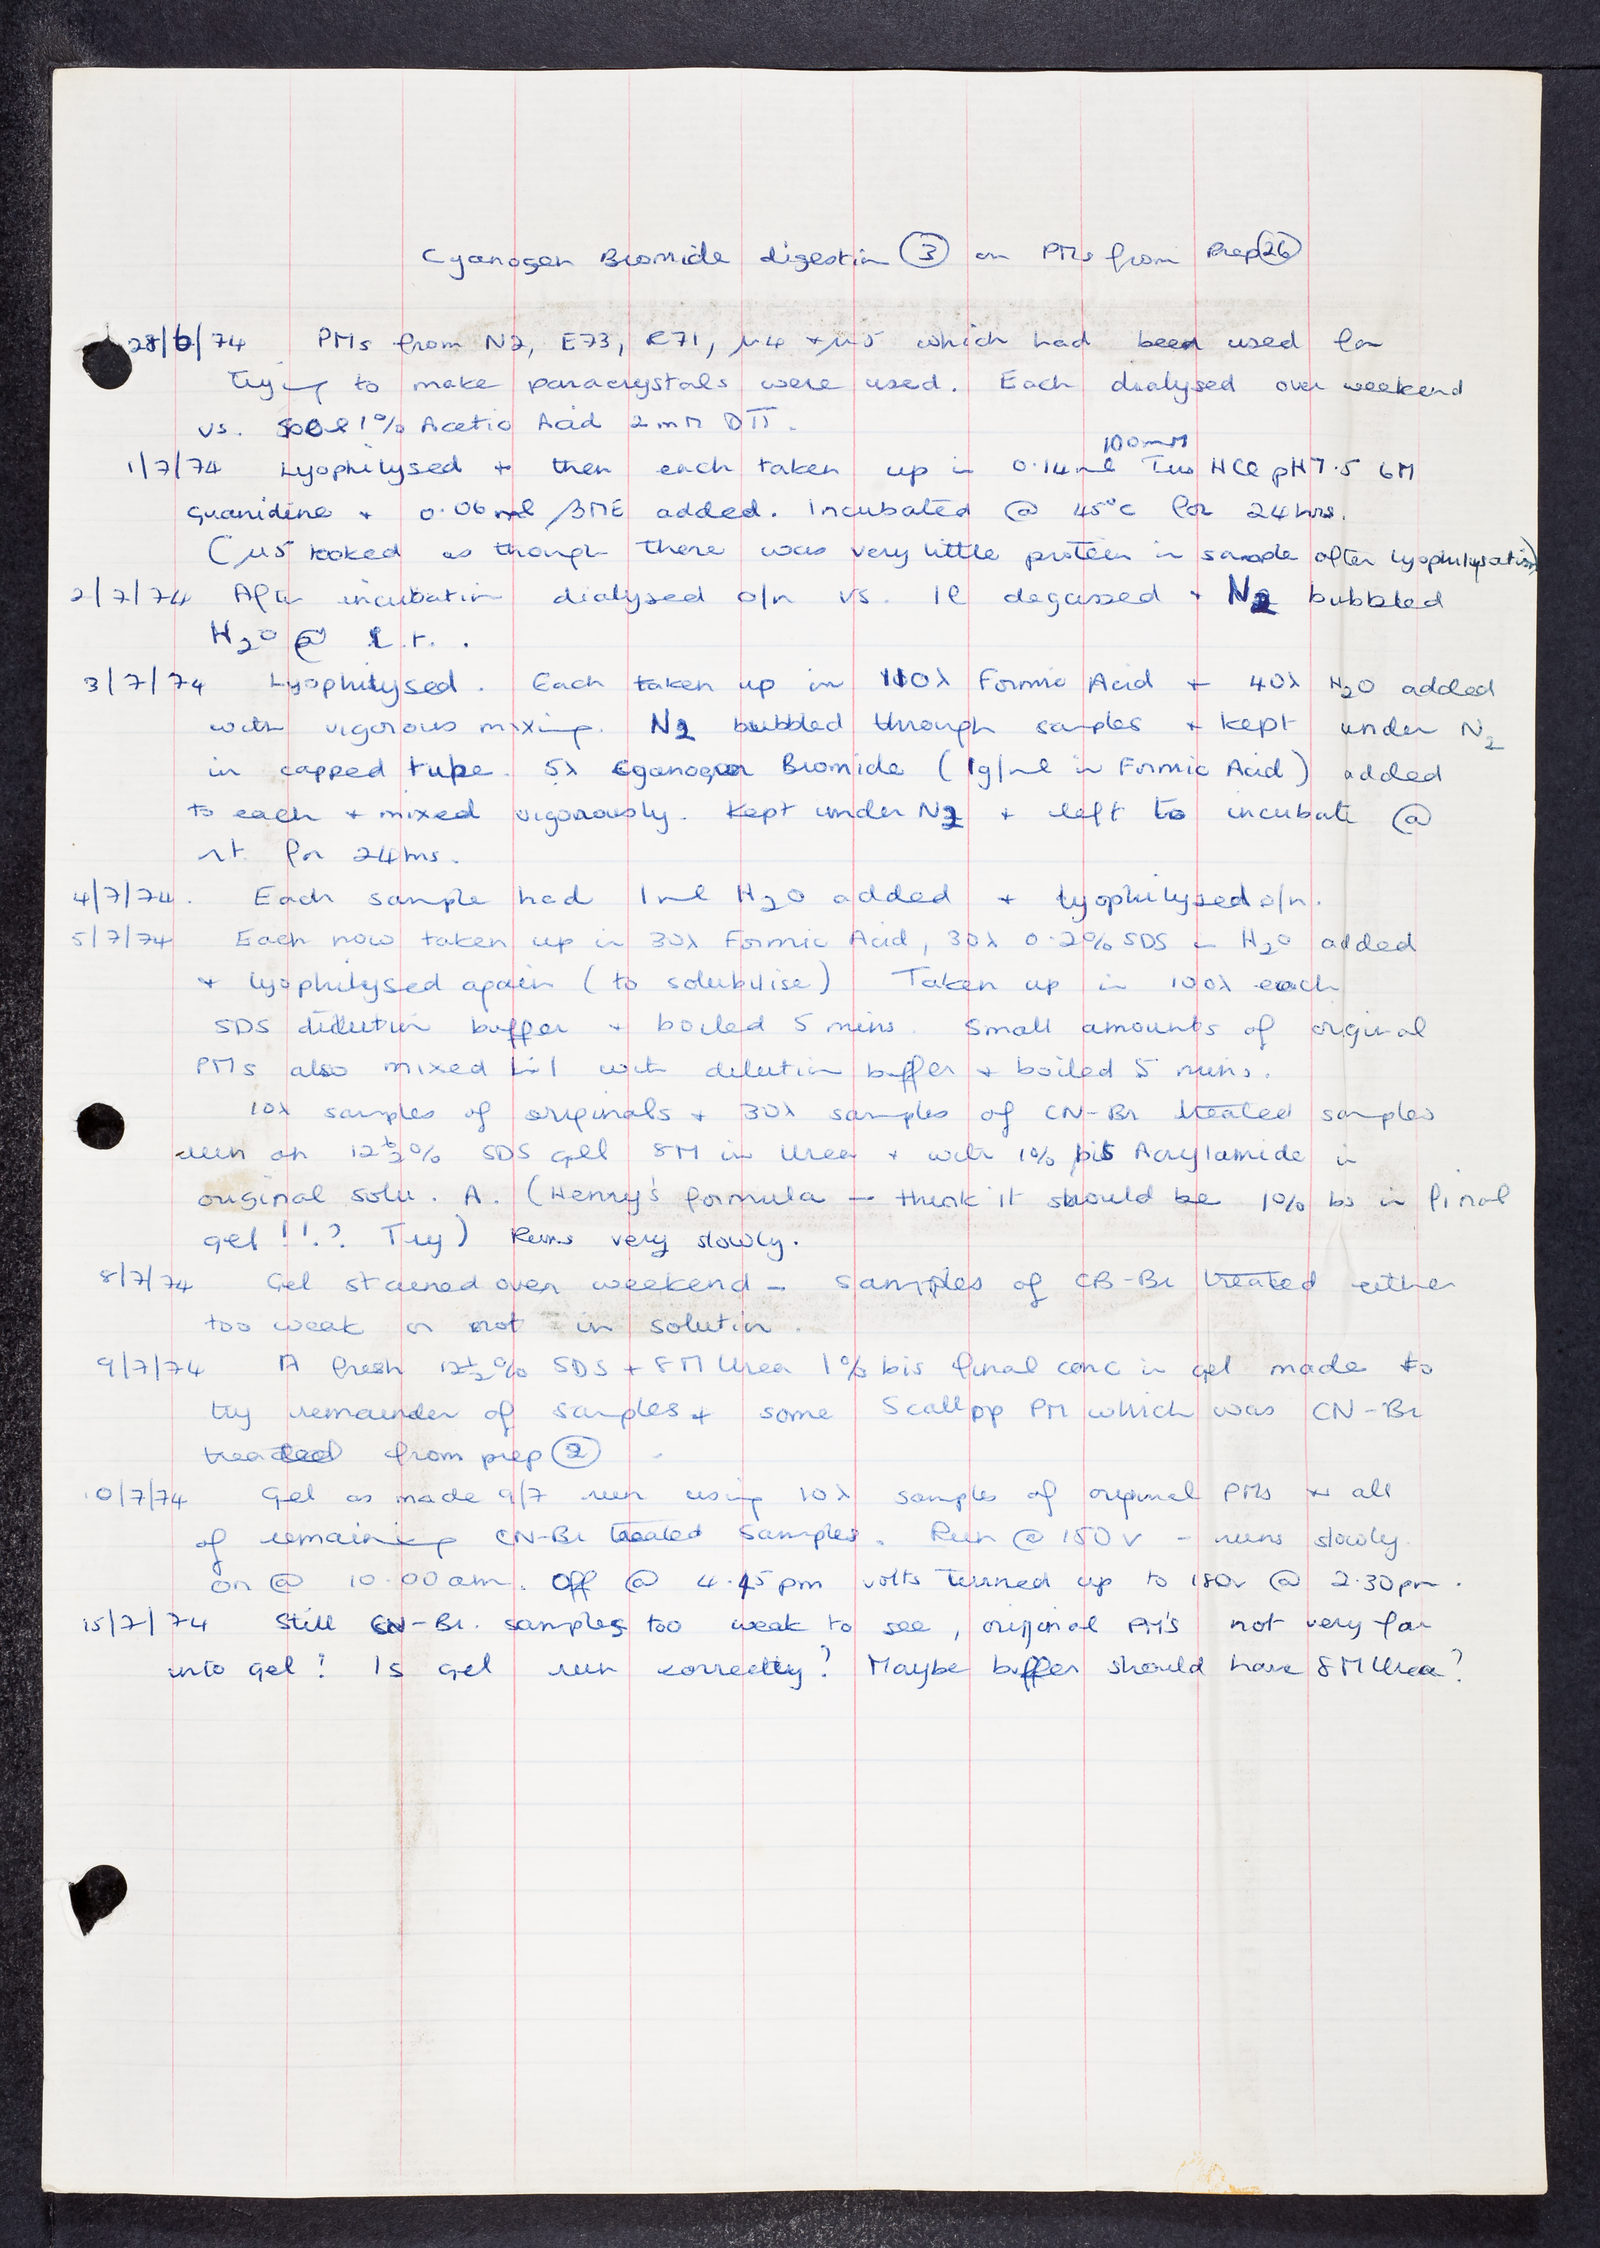 Cyanogen Bromide digestion ③ on PMs from Prep ㉖
28/6/74 PMs from N2, E73, E71, μ4 + μ5 which had been used for
trying to make paracrystals were used. Each dialysed over weekend
vs. 1% Acetic Acid 2mM DTT.
100mM
1/7/74 Lyophilysed + then each taken up in 0.14ml Tris HCl pH 7.5 6M
Guanidine + 0.06ml βME added. Incubated @ 45°C for 24hrs.
(μ5 looked as though there was very little protein in sample after lyophilysation)
2/7/74 After incubation dialysed o/n vs. 1l degassed + N2 bubbled
H2O @ r.t. .
3/7/74 Lyophilysed. Each taken up in 110λ Formic Acid + 40λ H2O added
with vigorous mixing. N2 bubbled through samples + kept under N2
in capped tube. 5λ Cyanogen Bromide (1g/ml in Formic Acid) added
to each + mixed vigorously. Kept under N2 + left to incubate @
rt for 24hrs.
4/7/74. Each sample had 1ml H2O added + lyophilysed o/n.
5/7/74 Each now taken up in 30λ Formic Acid, 30λ 0.2% SDS in H2O added
+ lyophilysed again (to solubilise) Taken up in 100λ each
SDS dilution buffer + boiled 5 mins. Small amounts of original
PMs also mixed 1:1 with dilution buffer + boiled 5 mins.
10λ samples of originals + 30λ samples of CN-Br treated samples
run on 12½% SDS gel 8M in Urea + with 1% bis Acrylamide in
original solu. A. (Henry's formula - think it should be 1% bis in final
gel!!? Try) Runs very slowly.
8/7/74 Gel stained over weekend - samples of CB-Br treated either
too weak or not in solution.
9/7/74 A fresh 12½% SDS + 8M Urea 1% bis final conc in gel made to
try remainder of samples + some Scallop PM which was CN-Br
treated from prep ②
10/7/74 Gel as made 9/7 run using 10λ samples of original PMs + all
of remaining CN-Br treated samples. Run @ 150v - runs slowly
on @ 10.00am. Off @ 4.45pm volts turned up to 180v @ 2.30pm.
15/7/74 Still CN-Br. samples too weak to see, original PM's not very far
into gel? Is gel run correctly? Maybe buffer should have 8M Urea?